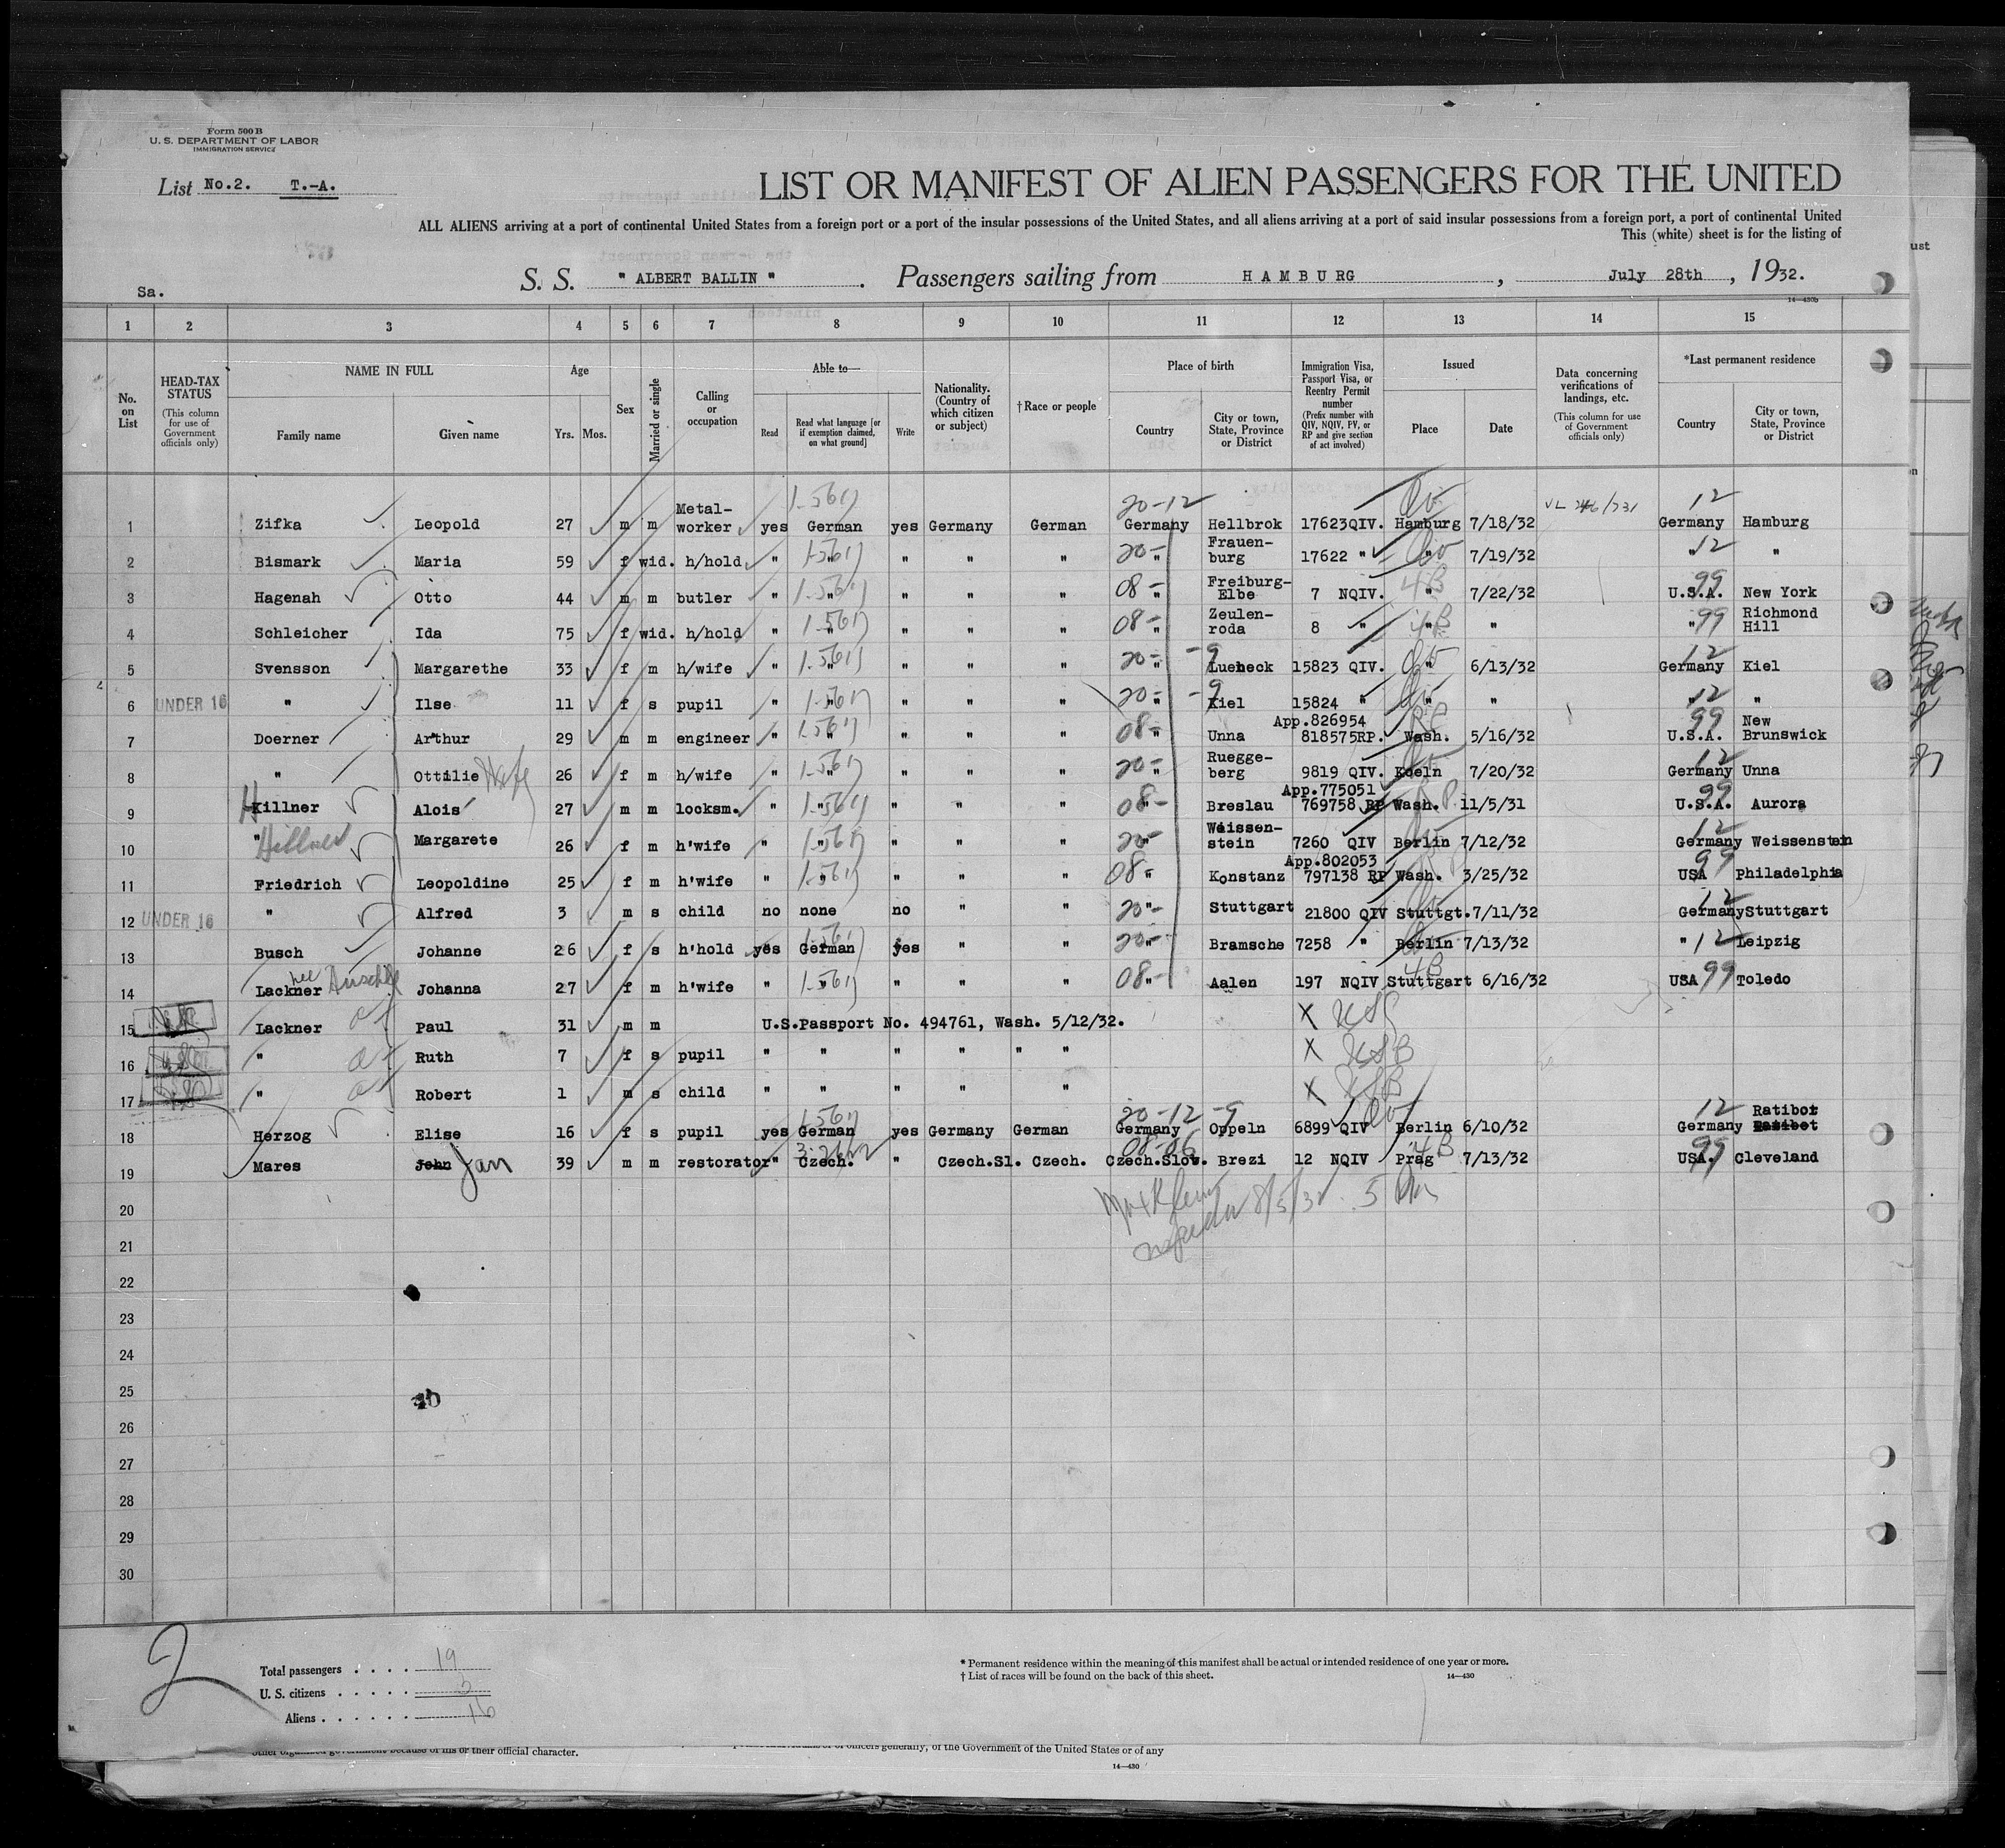 Form 500 B
U. S. DEPARTMENT OF LABOR
IMMIGRATION SERVICE
List No.2. T.-A.
LIST OR MANIFEST OF ALIEN PASSENGERS FOR THE UNITED
ALL ALIENS arriving at a port of continental United States from a foreign port or a port of the insular possessions of the United States, and all aliens arriving at a port of said insular possessions from a foreign port, a port of continental United
This (white) sheet is for the listing of
Sa.
S. S. " ALBERT BALLIN " . Passengers sailing from HAMBURG , July 28th , 1932.
14—430b
1 2 3 4 5 6 7 8 9 10 11 12 13 14 15
No. on List
HEAD-TAX STATUS (This column for use of Government officials only)
NAME IN FULL
Family name Given name
Age
Yrs. Mos.
Sex
Married or single
Calling or occupation
Able to—
Read Read what language [or if exemption claimed, on what ground] Write
Nationality. (Country of which citizen or subject)
†Race or people
Place of birth
Country City or town, State, Province or District
Immigration Visa, Passport Visa, or Reentry Permit number (Prefix number with QIV, NQIV, PV, or RP and give section of act involved)
Issued
Place Date
Data concerning verifications of landings, etc. (This column for use of Government officials only)
*Last permanent residence
Country City or town, State, Province or District
1 Zifka Leopold 27 m m Metal-worker yes German yes Germany German 20-12 Germany Hellbrok 17623QIV. Hamburg 7/18/32 12 Germany Hamburg
2 Bismark Maria 59 f wid. h/hold " " " " " 20- " Frauen-burg 17622 " " 7/19/32 " 12 "
3 Hagenah Otto 44 m m butler " " " " " 08- " Freiburg-Elbe 7 NQIV. 4B " 7/22/32 99 U.S.A. New York
4 Schleicher Ida 75 f wid. h/hold " " " " " 08- " Zeulen-roda 8 " 4B " " " 99 Richmond Hill
5 Svensson Margarethe 33 f m h/wife " " " " " 20- " -9 Luebeck 15823 QIV. " 6/13/32 12 Germany Kiel
6 UNDER 16 " Ilse 11 f s pupil " " " " " 20- " -9 Kiel 15824 " " " " 12 "
7 Doerner Arthur 29 m m engineer " " " " " 08- " Unna App.826954 818575RP. Wash. 5/16/32 99 U.S.A. New Brunswick
8 " Ottilie Wife 26 f m h/wife " " " " " 20- " Ruegge-berg 9819 QIV. Koeln 7/20/32 12 Germany Unna
9 H Killner Alois 27 m m locksm. " " " " " 08- " Breslau App.775051 769758 RP Wash. 11/5/31 99 U.S.A. Aurora
10 " Hillner Margarete 26 f m h'wife " " " " " 20- " Weissen-stein 7260 QIV Berlin 7/12/32 12 Germany Weissenstein
11 Friedrich Leopoldine 25 f m h'wife " " " " " 08- " Konstanz App.802053 797138 RP Wash. 3/25/32 99 USA Philadelphia
12 UNDER 16 " Alfred 3 m s child no none no " " 20- " Stuttgart 21800 QIV Stuttgt. 7/11/32 12 Germany Stuttgart
13 Busch Johanne 26 f s h'hold yes German yes " " 20- " Bramsche 7258 " Berlin 7/13/32 " 12 Leipzig
14 Lackner nee Johanna 27 f m h'wife " " " " " 08- " Aalen 197 NQIV 4B Stuttgart 6/16/32 USA 99 Toledo
15 Lackner Paul 31 m m U.S.Passport No. 494761, Wash. 5/12/32. X
16 " Ruth 7 f s pupil " " " " " " X USB
17 " Robert 1 m s child " " " " " X USB
18 Herzog Elise 16 f s pupil yes German yes Germany German 20-12 Germany -9 Oppeln 6899 QIV Berlin 6/10/32 12 Germany Ratibor
19 Mares John Jan 39 m m restorator " Czech. " Czech.Sl. Czech. 08-06 Czech.Slov. Brezi 12 NQIV 4B Prag 7/13/32 99 USA. Cleveland
20
8/5/32
21
22
23
24
25
26
27
28
29
30
2
Total passengers . . . . 19
U. S. citizens . . . . . 3
Aliens . . . . . . 16
* Permanent residence within the meaning of this manifest shall be actual or intended residence of one year or more.
† List of races will be found on the back of this sheet.
14—430
other organized government because of his or their official character.
officers generally, of the Government of the United States or of any
14—430